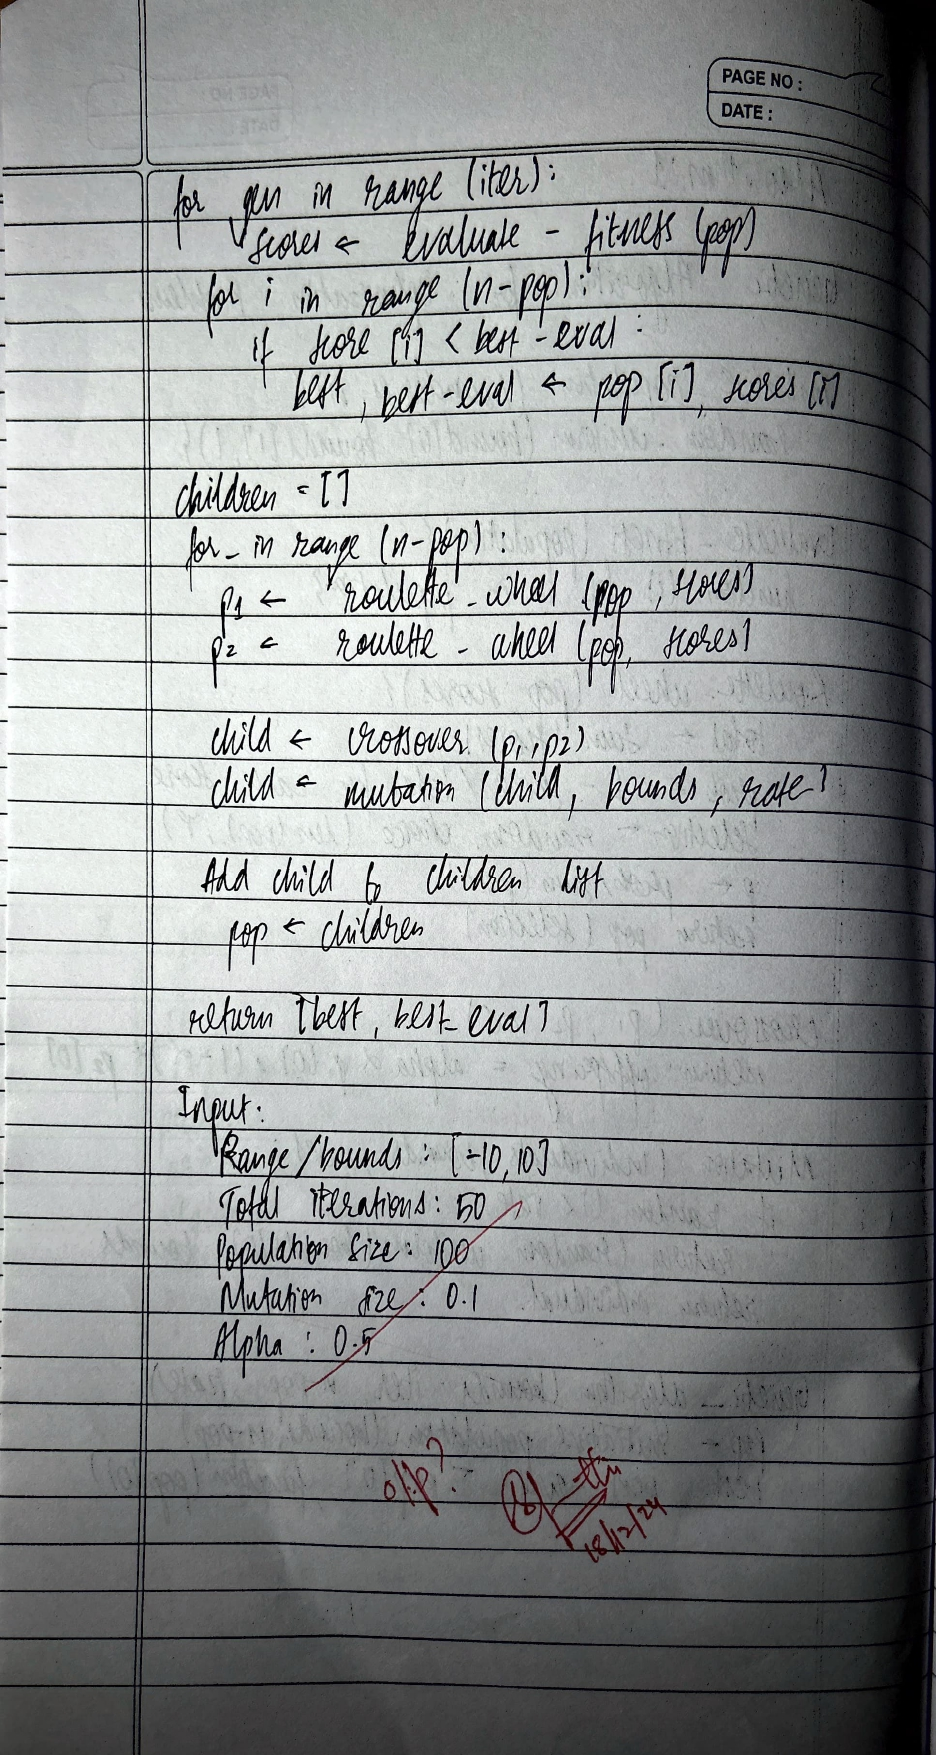 PAGE NO :
DATE :
for gen in range (iter):
scores ← evaluate - fitness (pop)
for i in range (n-pop):
if score [i] < best - eval :
best, best-eval ← pop [i], scores [i]
children = []
for _ in range (n-pop):
p1 ← roulette - wheel (pop, scores)
p2 ← roulette - wheel (pop, scores)
child ← crossover (p1, p2)
child ← mutation (child, bounds, rate)
Add child to children list
pop ← children
return [best, best_eval]
Input:
Range/bounds : [-10, 10]
Total iterations : 50
Population size : 100
Mutation size : 0.1
Alpha : 0.5
o/p?
18/12/24